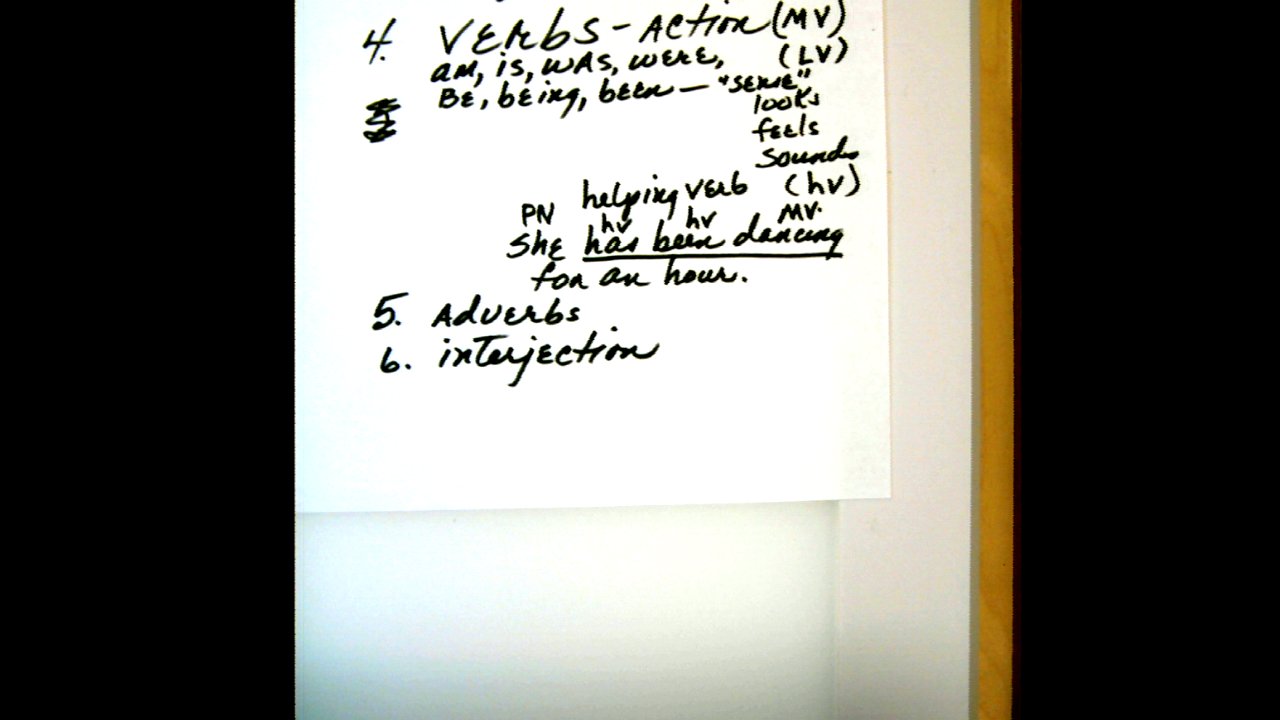 4. VERBS - ACTION (MV)
AM, IS, WAS, WERE, (LV)
BE, being, been — "SENSE"
looks
feels
sounds
helping verb (hv)
PN hv hv MV.
She has been dancing
for an hour.
5. Adverbs
6. interjection